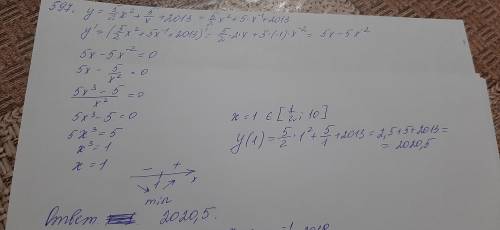 597. y = 5/2 x² + 5/x + 2013 = 5/2 x² + 5·x⁻¹ + 2013
y' = (5/2 x² + 5x⁻¹ + 2013)' = 5/2 · 2·x + 5·(-1)·x⁻² = 5x - 5x⁻²
5x - 5x⁻² = 0
5x - 5/x² = 0
5x³ - 5/x² = 0
5x³ - 5 = 0
5x³ = 5
x³ = 1
x = 1
- + x
1
min
x = 1 ∈ [1/2; 10]
y(1) = 5/2 · 1² + 5/1 + 2013 = 2,5 + 5 + 2013 =
= 2020,5
Ответ 2020,5.